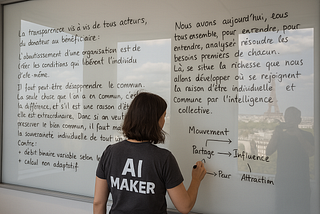 La transparence vis à vis de tous acteurs,
du donateur au bénéficiaire :
L'aboutissement d'une organisation est de
créer les conditions qui libèrent l'individu
d'elle-même.
Il faut peut être désapprendre le commun.
La seule chose que l'on a en commun, c'est
la différence, et s'il est une raison d'être
elle est extraordinaire. Donc si on veut
préserver le bien commun, il faut
la souveraineté individuelle de tout
Contre :
• débit binaire variable selon
• calcul non adaptatif
Nous avons aujourd'hui, tous
tous ensemble, pour entendre, pour
entendre, analyser résoudre les
besoins premiers de chacun.
Là, se situe la richesse que nous
allons développer où se rejoignent
la raison d'être individuelle et
commune par l'intelligence
collective.
Mouvement
Partage → Influence
→ Peur
Attraction
AI
MAKER